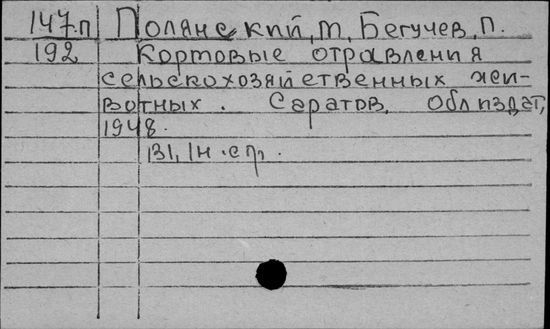 147.п Полянский, М, Бегучев, П.
192 Кортовые отравления
сельскохозяйственных жи-
вотных. Саратов, Облиздат,
1948.
131, 1н.стр.